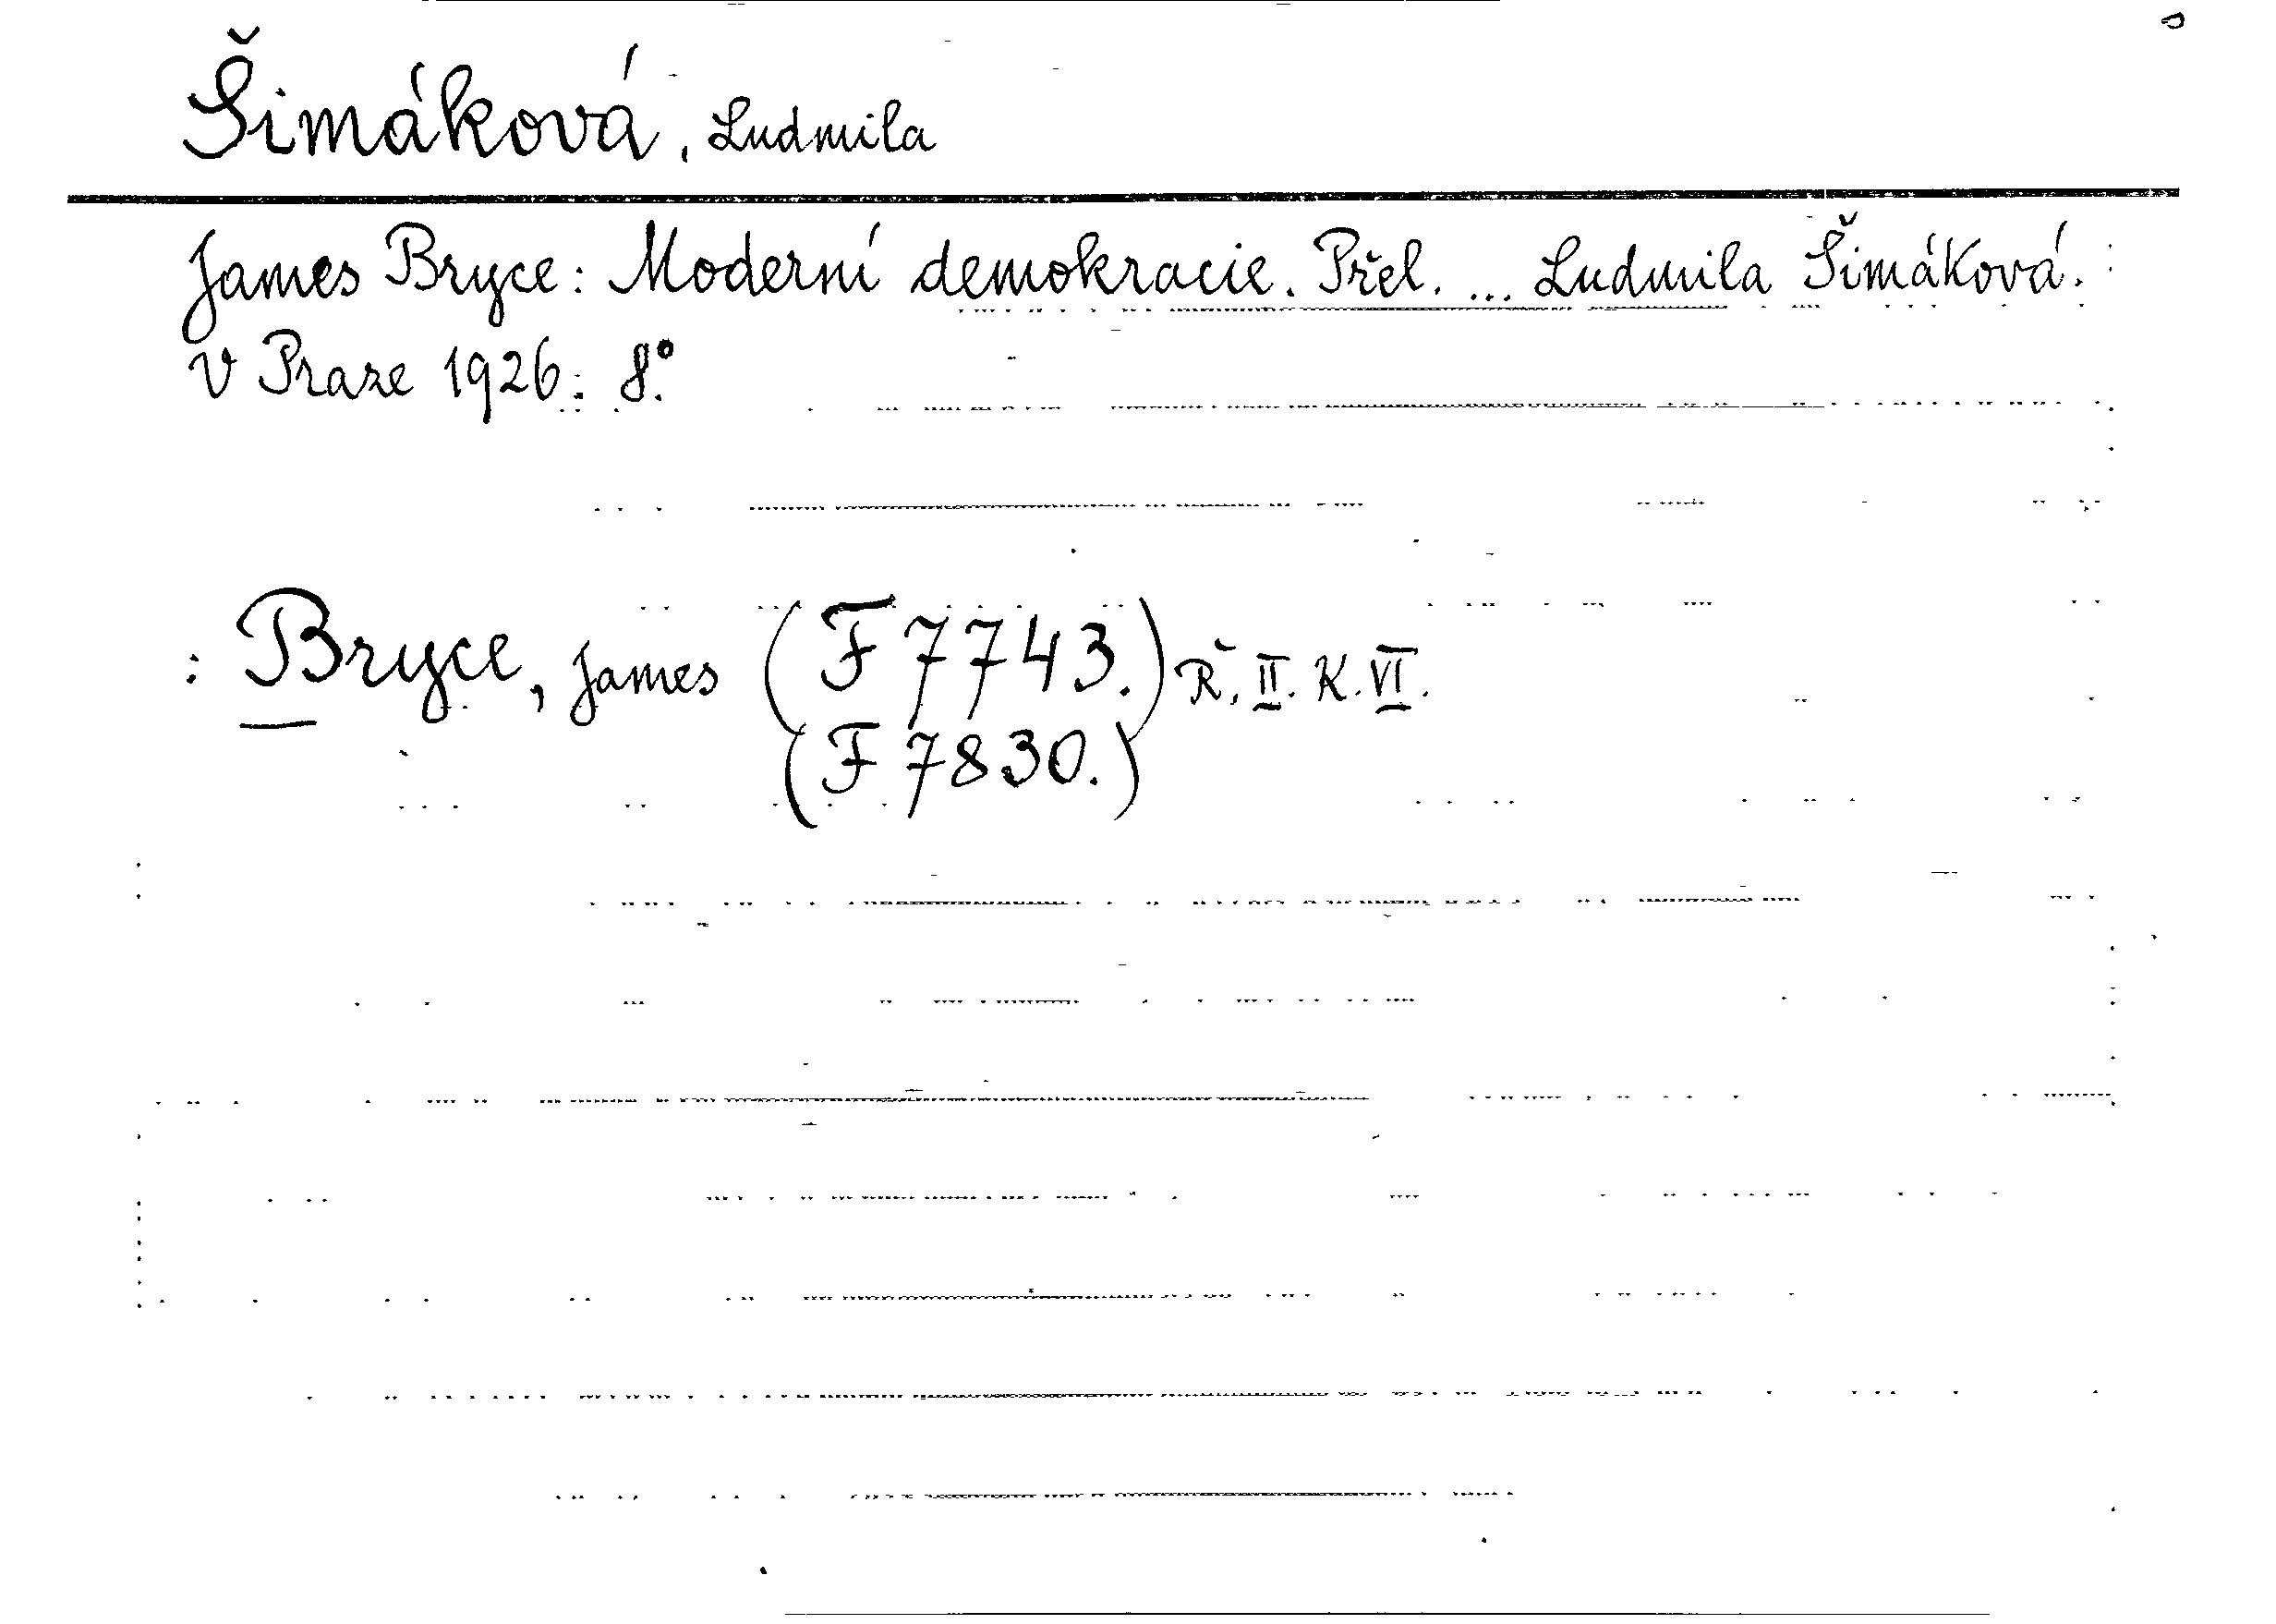 Šimáková, Ludmila
James Bryce: Moderní demokracie. Přel. ... Ludmila Šimáková.
V Praze 1926. 8°.
: Bryce, James (F 7743.) Ř. II. K. VI.
(F 7830.)